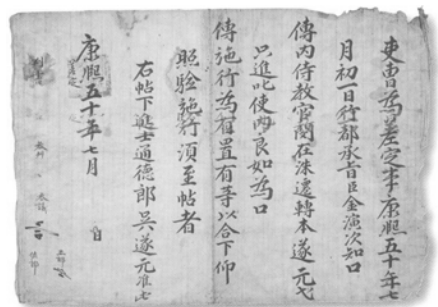 吏曹爲差定事康熙五十年七
月初一日行都承旨臣金演次知口
傳內侍教官閔在洙遞轉本遂元戈
只進叱使內良如爲口
傳施行爲有置有等以合下仰
照驗施行須至帖者
右帖下進士通德郎吳遂元準此
康熙五十年七月 日
差定
判書
參判 參議
正郎
佐郎